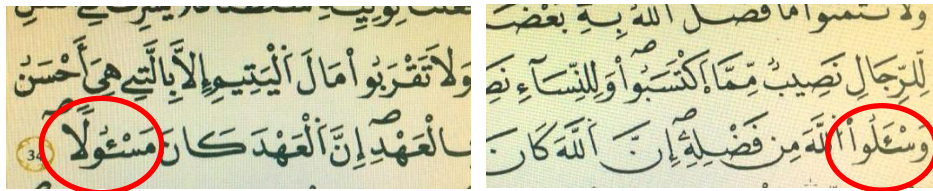 وَلَا تَقْرَبُواْ مَالَ اَلْيَتِيمِ إِلَّا بِالَّتِے هِيَ أَحْسَنُ
بِالْعَهْدِ إِنَّ اَلْعَهْدَ كَانَ مَسْـُٔولًا 34
وَلَا تَتَمَنَّوْاْ مَا فَضَّلَ اَللَّهُ بِهِۦ بَعْضَ
لِّلرِّجَالِ نَصِيبٌ مِّمَّا اَكْتَسَبُواْ وَلِلنِّسَآءِ
وَسْـَٔلُواْ اُللَّهَ مِن فَضْلِهِۦٓ إِنَّ اَللَّهَ كَانَ